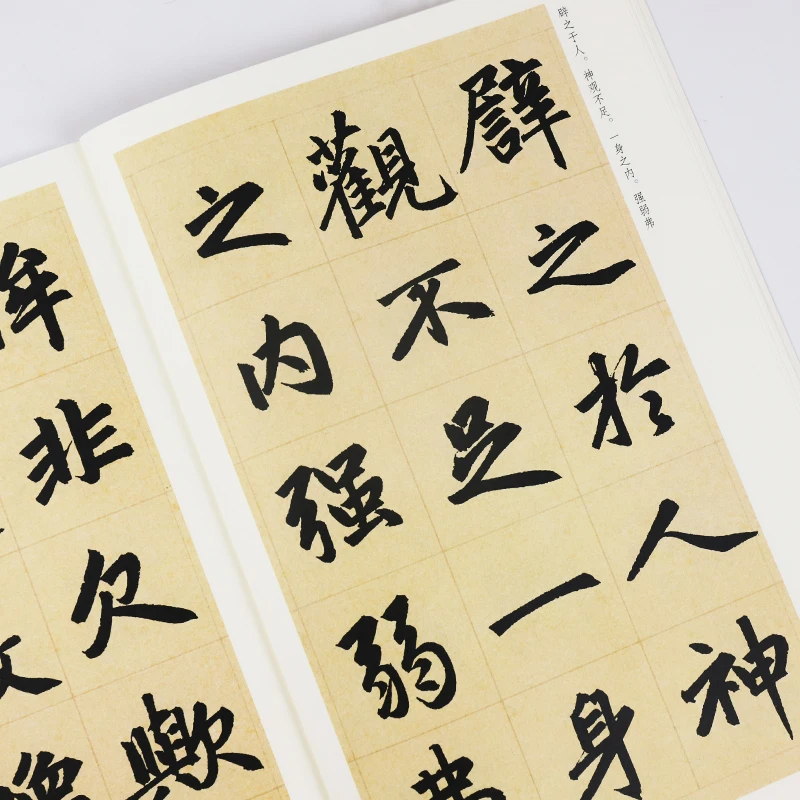 辟之于人。神观不足。一身之内。强弱弗
譬之於人神
觀不足一身
之内强弱弗
非欠歟